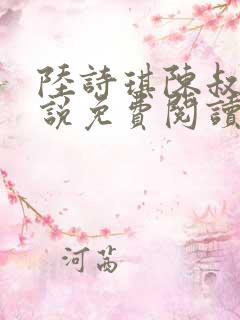 陸詩琪陳叔
說免費閱讀
河茜